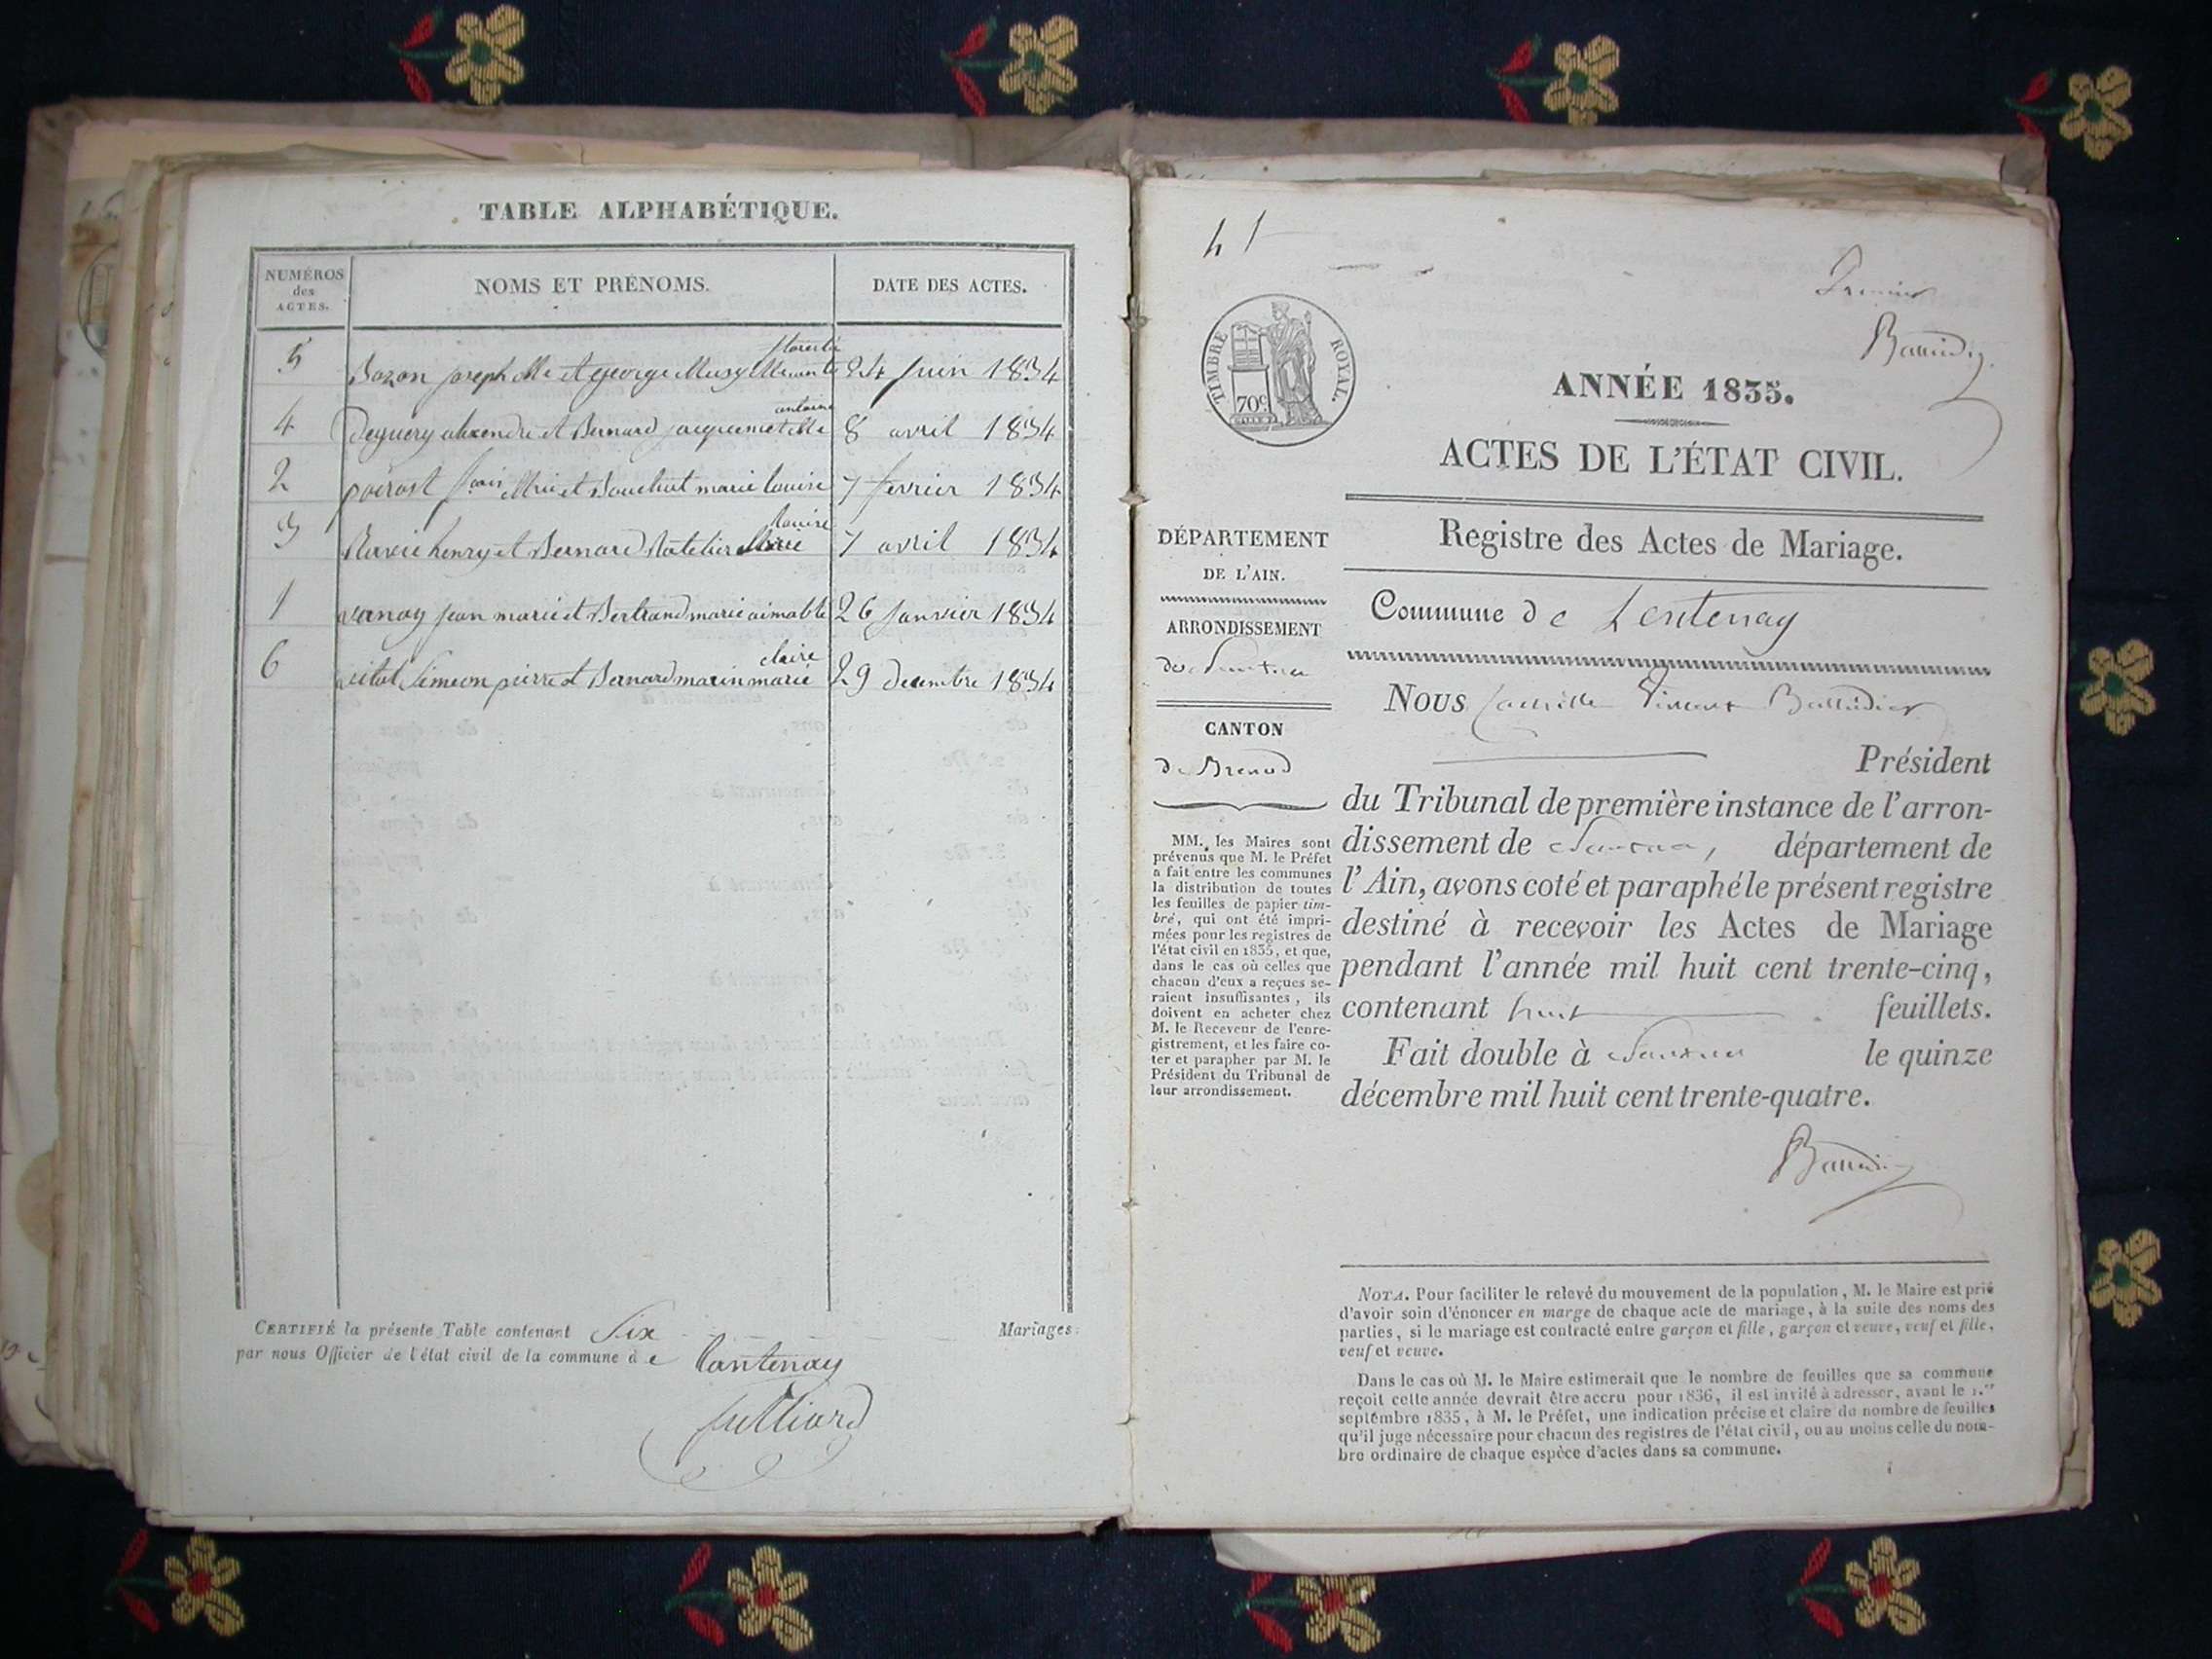 TABLE ALPHABÉTIQUE.
NUMÉROS
des
ACTES.
NOMS ET PRÉNOMS.
DATE DES ACTES.
5 Bozon joseph et george Musy 24 juin 1834
antoine
4 Deguery alexendre et Bernard 8 avril 1834
2 et Bouchut marie louise 7 fevrier 1834
louise
3 Ravie henry et Bernard Ratelier 7 avril 1834
1 vernay jean marie et Bertrand marie aimable 26 janvier 1834
claire
6 vital Simeon pierre et Bernard marin marie 29 decembre 1834
CERTIFIÉ la présente Table contenant Six Mariages
par nous Officier de l'état civil de la commune de Lantenay
Julliard
41
Premier
TIMBRE ROYAL.
70c
ANNÉE 1835.
ACTES DE L'ÉTAT CIVIL.
Registre des Actes de Mariage.
Commune de Lentenay
DÉPARTEMENT
DE L'AIN.
ARRONDISSEMENT
de Nantua
CANTON
de Brenod
MM. les Maires sont
prévenus que M. le Préfet
a fait entre les communes
la distribution de toutes
les feuilles de papier tim-
bré, qui ont été impri-
mées pour les registres de
l'état civil en 1835, et que,
dans le cas où celles que
chacun d'eux a reçues se-
raient insuffisantes, ils
doivent en acheter chez
M. le Receveur de l'enre-
gistrement, et les faire co-
ter et parapher par M. le
Président du Tribunal de
leur arrondissement.
Nous Camille Vincent
Président
du Tribunal de première instance de l'arron-
dissement de Nantua, département de
l'Ain, avons coté et paraphé le présent registre
destiné à recevoir les Actes de Mariage
pendant l'année mil huit cent trente-cinq,
contenant huit feuillets.
Fait double à Nantua le quinze
décembre mil huit cent trente-quatre.
NOTA. Pour faciliter le relevé du mouvement de la population, M. le Maire est prié
d'avoir soin d'énoncer en marge de chaque acte de mariage, à la suite des noms des
parties, si le mariage est contracté entre garçon et fille, garçon et veuve, veuf et fille,
veuf et veuve.
Dans le cas où M. le Maire estimerait que le nombre de feuilles que sa commune
reçoit cette année devrait être accru pour 1836, il est invité à adresser, avant le 1.er
septembre 1835, à M. le Préfet, une indication précise et claire du nombre de feuilles
qu'il juge nécessaire pour chacun des registres de l'état civil, ou au moins celle du nom-
bre ordinaire de chaque espèce d'actes dans sa commune.